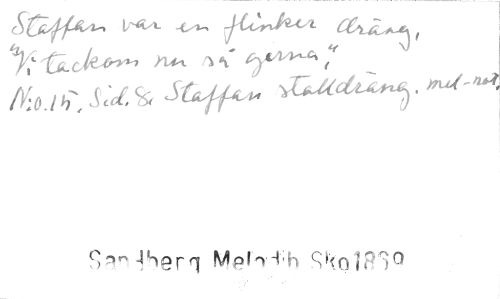 Staffan var en flinker dräng,
"Vi tackom nu så gerna,"
N:o.15. Sid. 8. Staffan stalldräng. mel-not.
Sandberg Melodib Sko1869